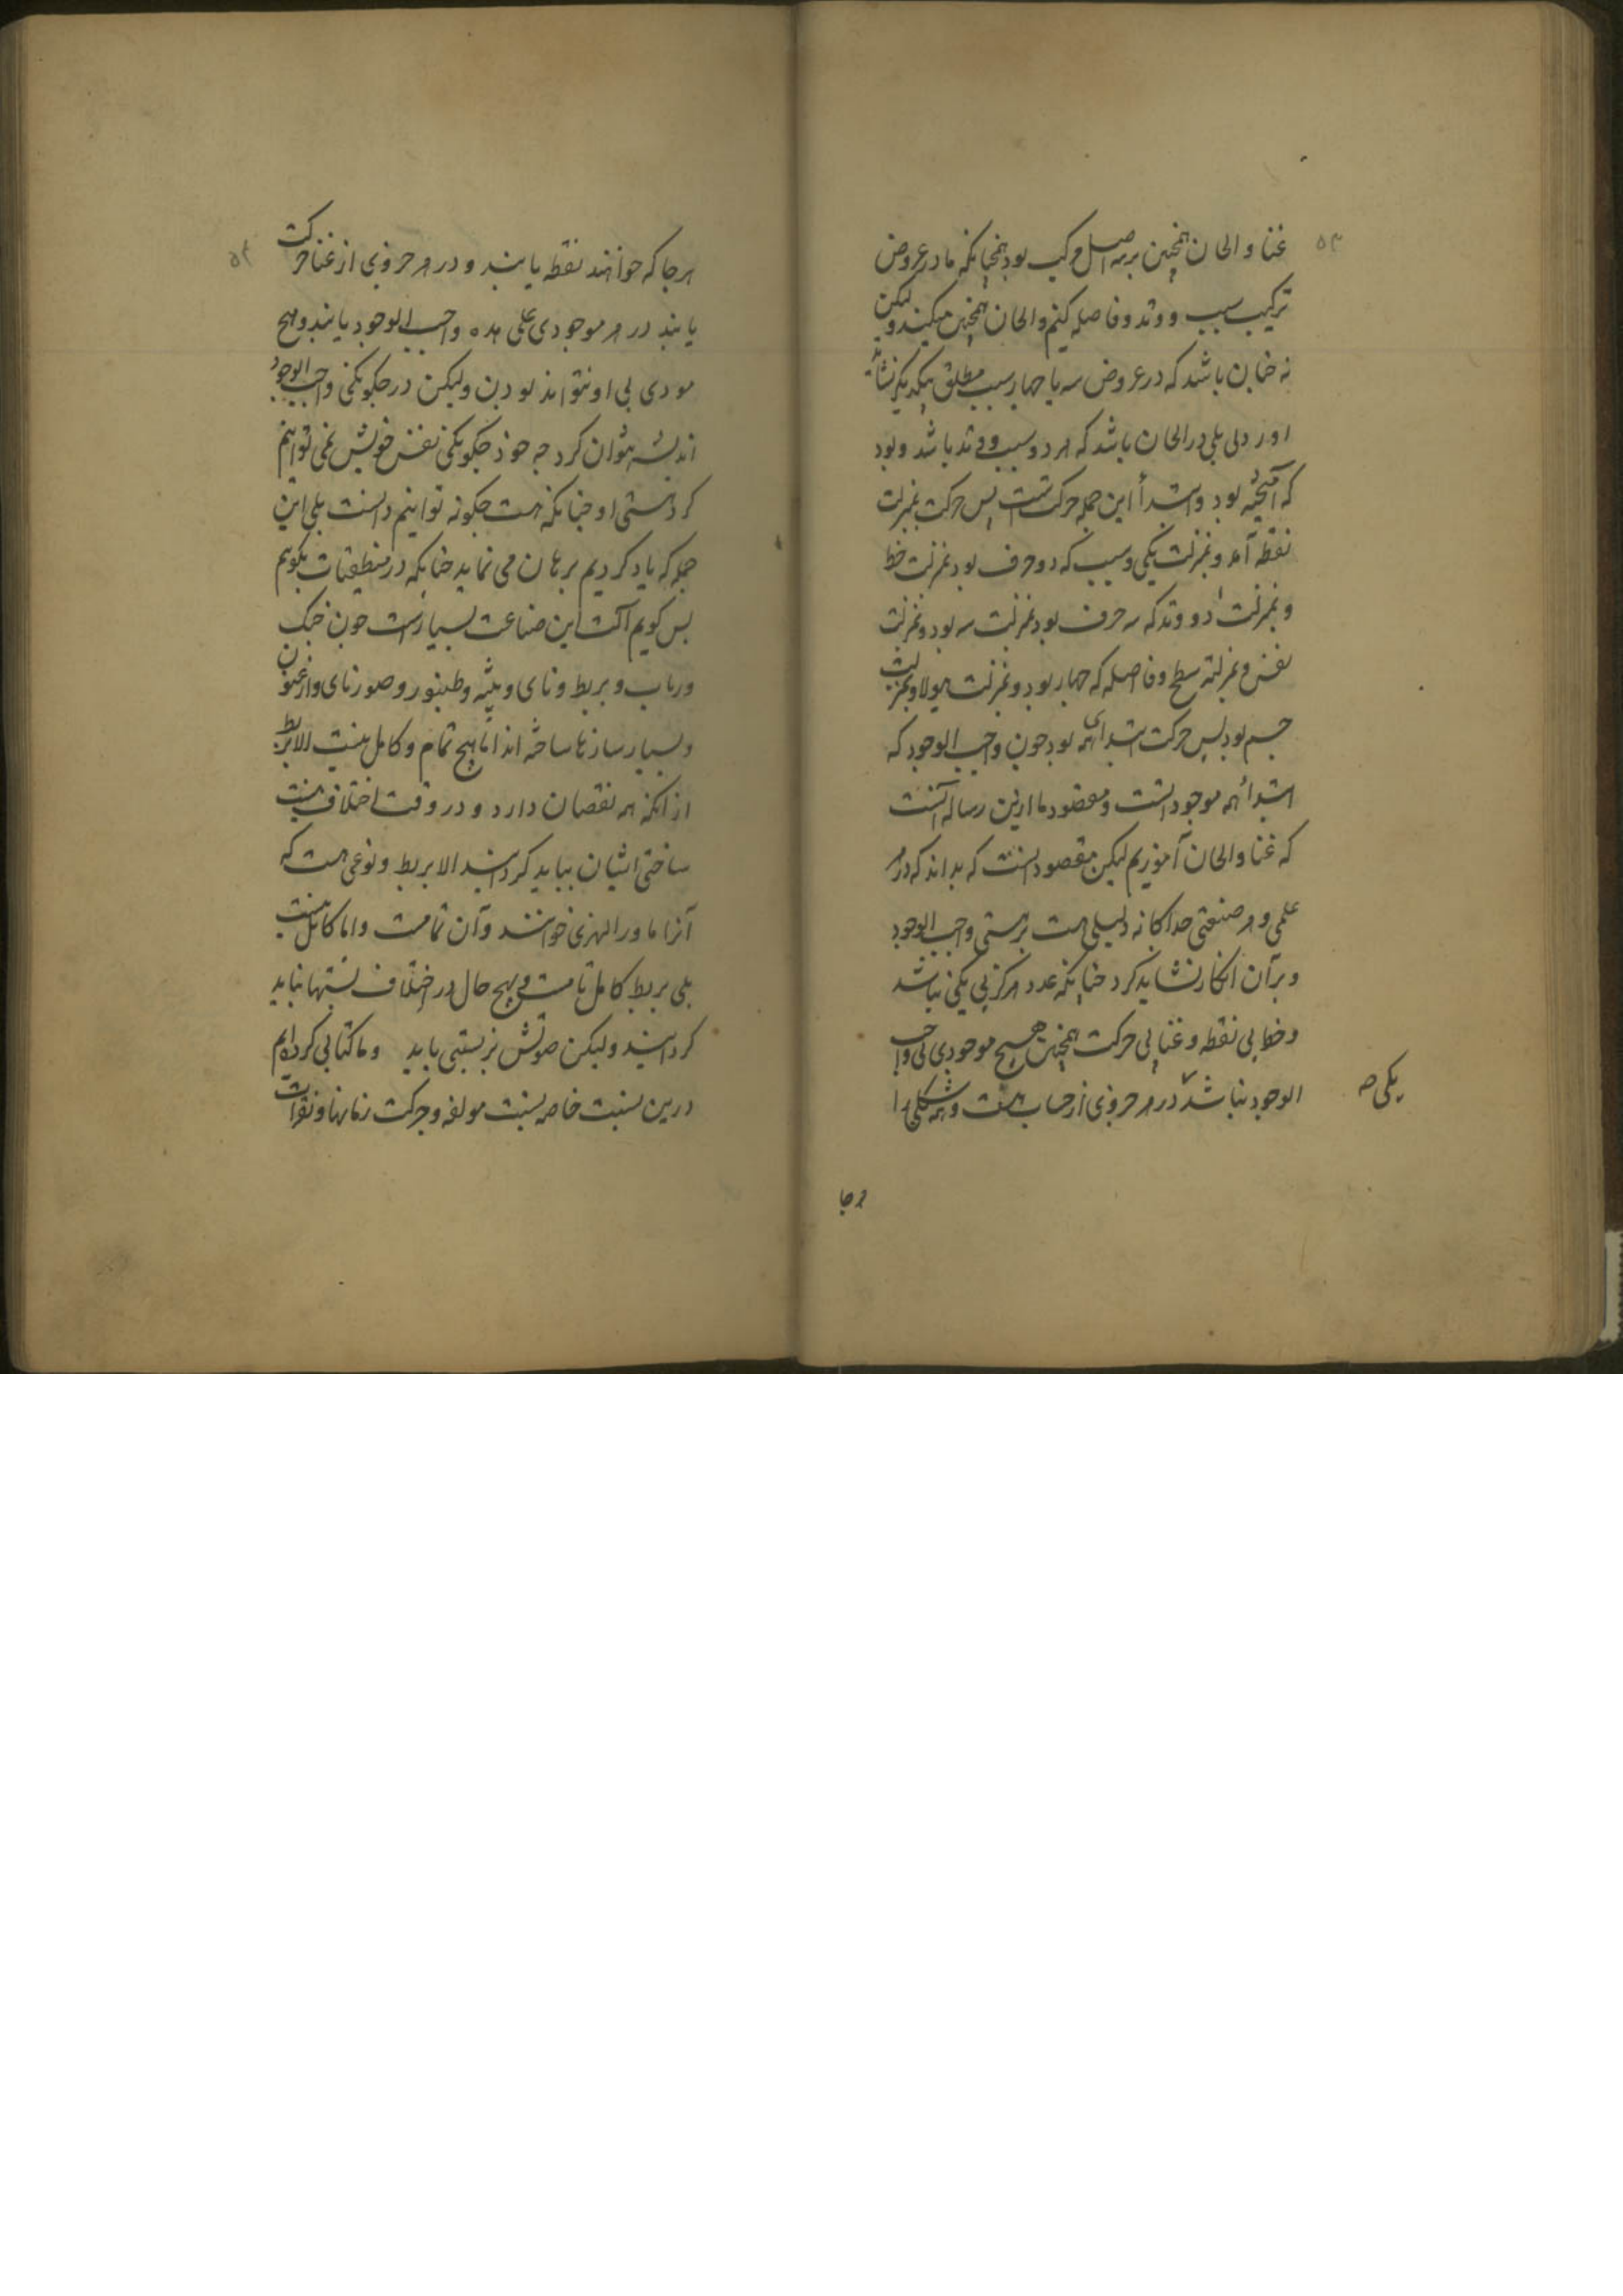 ۵۳
غنا و الحان همچنین برسه اصل مرکب بود همچنانکه ما در عروض
ترکیب سبب و وتد و فاصله کنیم و الحان همچنین میکنند ولیکن
نه چنان باشد که در عروض سه یا چهار سبب مطلق بیکدیگر نشاید
اورد ولی بلی در الحان باشد که هر دو سبب و وتد باشد و بود
که آمیخته بود و ابتدأ این جمله حرکتست پس حرکت بمنزلت
نقطه آمد و بمنزلت یکی و سبب که دو حرف بود بمنزلت خط
و بمنزلت دو و وتد که سه حرف بود بمنزلت سه بود و بمنزلت
نفس و بمنزلة سطح و فاصله که چهار بود و بمنزلت هیولا و بمنزلت
جسم بود پس حرکت ابتدای همه بود چون واجب الوجود که
ابتدأ همه موجوداتست و مقصود ما ازین رساله آنست
که غنا و الحان آموزیم لیکن مقصود انست که بداند که در هر
علمی و هر صنعتی جداکانه دلیلی هست بر هستی واجب الوجود
و بر آن انکار نشاید کرد چنانکه عدد هرکز بی یکی نباشد
و خط بی نقطه و غنا بی حرکت همچنین هیچ موجودی بی واجب
الوجود نباشد در هر جزوی از حساب هست و همه شکلی را
یکی صح
هرجا
۵۴
هرجا که خوانند نقطه یابند و در هر جزوی از غنا حرکت
یابند در هر موجودی علی حده واجب الوجود یابند و هیچ
موجودی بی او نتواند بودن ولیکن در چکونکی واجب الوجود
اندیشه نتوان کرد چه خود چکونکی نفس خویش نمی توانیم
کرد هستی او چنانکه هست چکونه توانیم دانست بلی این
جمله که یاد کردیم برهان می نماید چنانکه در منطقیات بکویم
پس کویم آلت این صناعت بسیارست چون چنک
و رباب و بربط و نای و بیشه و طنبور و صورنای و ارغنون
و بسیار سازها ساخته اند اما هیچ تمام و کامل نیست الا بربط
از آنکه همه نقصان دارد و در وقت اختلاف نسبت
ساختی ایشان بباید کردانید الا بربط و نوعی هست که
آنرا ماورا النهری خوانند و آن تمامست و اما کامل نیست
بلی بربط کامل تامست و بهیچ حال در اختلاف نسبتها نباید
کردانید ولیکن صوتش بر نسبتی باید و ما کتابی کرده ایم
درین نسبت خاصه نسبت مولفه و حرکت زمانها و نقرات